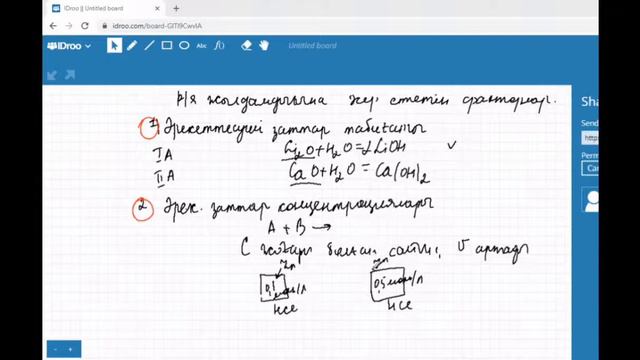 IDroo || Untitled board
idroo.com/board-GlTI9CwvIA
IDroo
Abc
f()
Untitled board
Р/я жылдамдығына әсер ететін факторлар.
1 Әрекеттесуші заттар табиғаты
I A Li₂O+H₂O=2LiOH
II A CaO+H₂O=Ca(OH)₂
2 Әрек. заттар концентрациялары
A + B →
C жоғары болған сайын, υ артады
Zn Zn
0,1 моль/л 0,5 моль/л
HCl HCl
Sha
http
Can